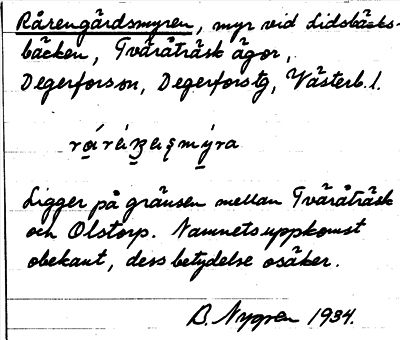 Rårengårdsmyren, myr vid Lidsbäcks-
bäcken, Tväråträsk ägor,
Degerforssn, Degerforstg, Västerb. l.
Ligger på gränsen mellan Tväråträsk
och Olstorp. Namnets uppkomst
obekant, dess betydelse osäker.
B. Nygren 1934.